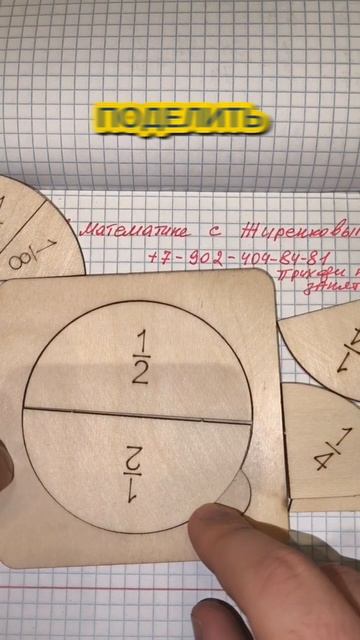 ПОДЕЛИТЬ
Математика с Жиренковы
+7-902-404-84-81
Приходи н
занят
1/8
1/2
1/2
1/4